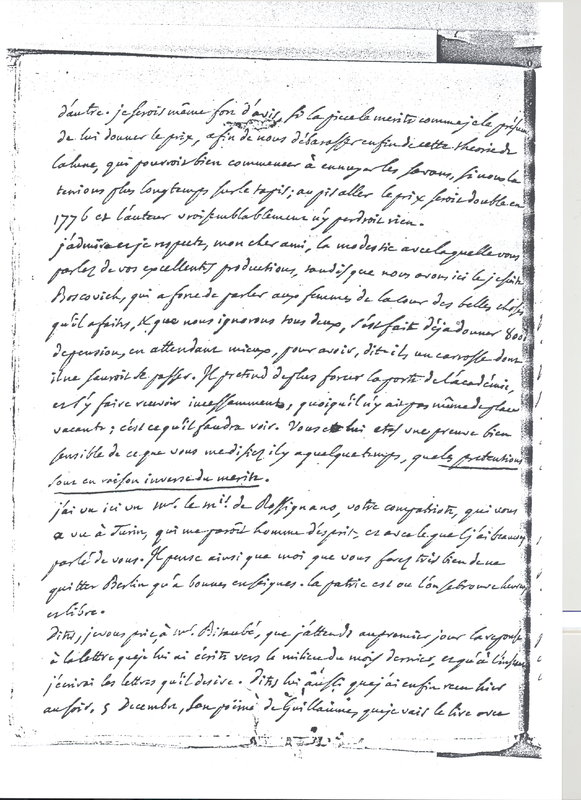 d'autre. je serois même fort d'avis, si la piece le merite comme je le présume
de lui donner le prix, afin de nous débarasser enfin de cette theorie de
la lune, qui pourroit bien commencer à ennuyer les savans, si nous la
tenions plus longtemps sur le tapis; au pis aller le prix seroit double en
1776 et l'auteur vraisemblablement n'y perdroit rien.
j'admire et je respecte, mon cher ami, la modestie avec laquelle vous
parlez de vos excellentes productions, tandis que nous avons ici le jesuite
Boscovich, qui a force de parler aux femmes de la cour des belles choses
qu'il a faites, & que nous ignorons tous deux, s'est fait déja donner 8000
de pension, en attendant mieux, pour avoir, dit-il, un carrosse dont
il ne sauroit se passer. Il pretend de plus forcer la porte de l'académie,
et s'y faire recevoir incessamment, quoiqu'il n'y ait pas même de place
vacante; c'est ce qu'il faudra voir. Vous et lui etes une preuve bien
sensible de ce que vous me disiez il y a quelque temps, que les pretentions
sont en raison inverse du merite.
j'ai vu ici un mr. le mis. de Rossignano, votre compatriote, qui vous
a vu à Turin, qui me paroît homme d'esprit, et avec lequel j'ai beaucoup
parlé de vous. Il pense ainsi que moi que vous ferez très bien de ne
quitter Berlin qu'a bonnes enseignes. la patrie est où l'on se trouve heureux
et libre.
Dites, je vous prie, à mr. Bitaubé, que j'attends au premier jour la reponse
à la lettre que je lui ai écrite vers le milieu du mois dernier, et qu'à l'instant
j'ecrirai les lettres qu'il desire. Dites lui aussi que j'ai enfin recu hier
au soir, 5 Decembre, son poëme de Guillaume, que je vais le lire avec